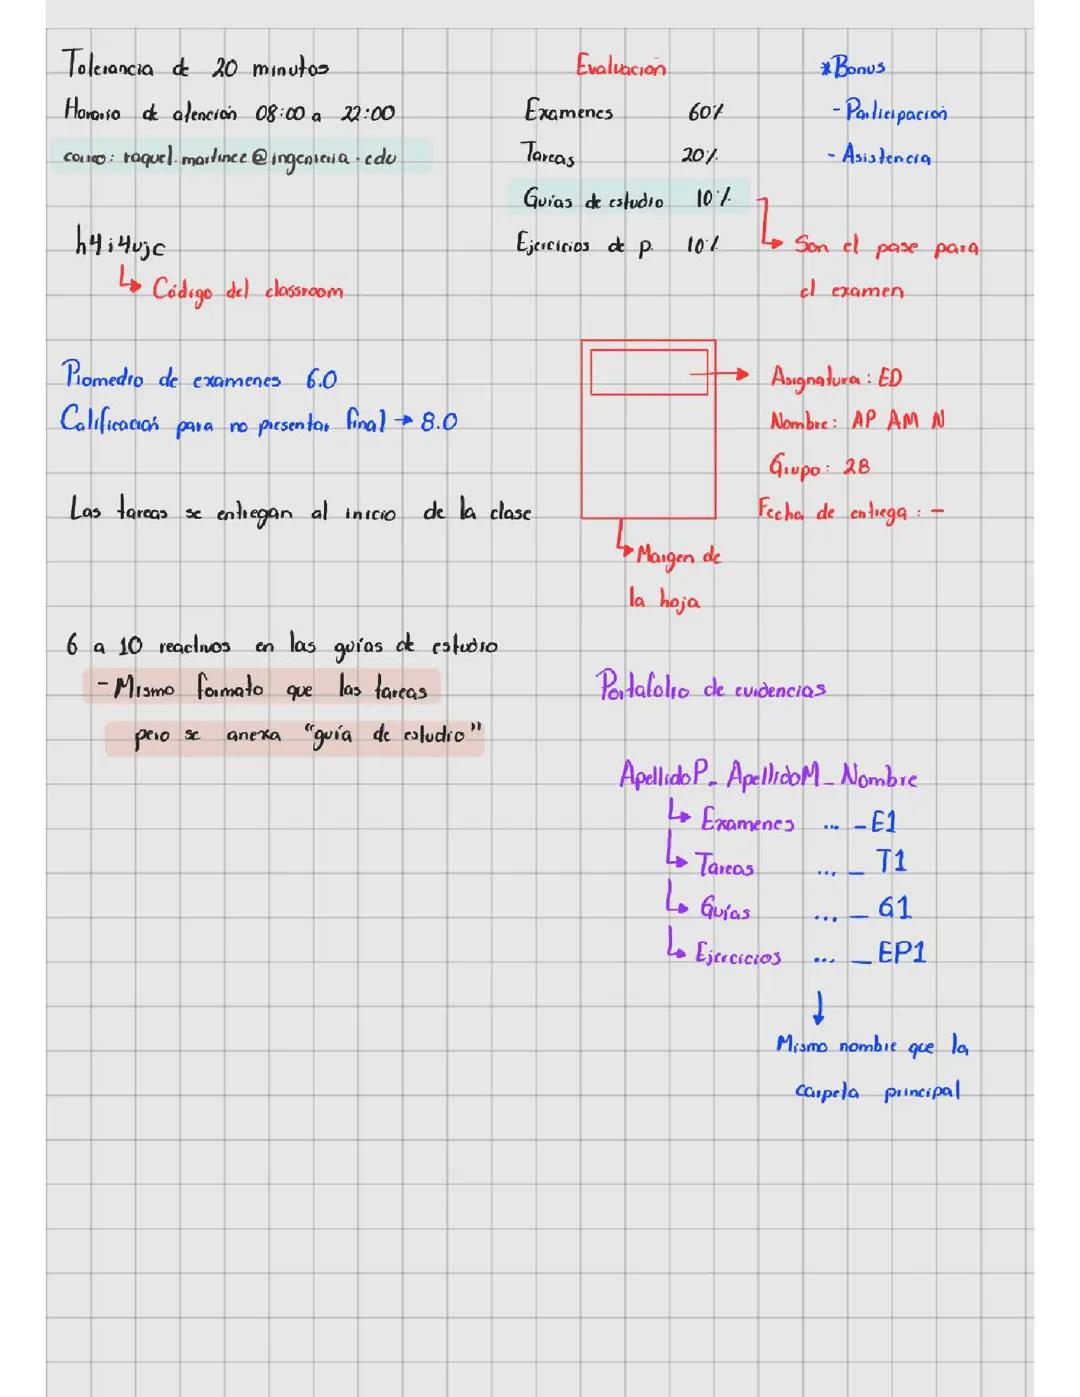 Tolerancia de 20 minutos
Horario de atención 08:00 a 22:00
correo: raquel.martinez@ingenieria.edu
h4i4vjc
Código del classroom
Evaluación
Examenes 60%
Tareas 20%
Guías de estudio 10%
Ejercicios de p. 10%
*Bonus
- Participación
- Asistencia
Son el pase para
el examen
Promedio de examenes 6.0
Calificación para no presentar final → 8.0
Las tareas se entregan al inicio de la clase
Asignatura: ED
Nombre: AP AM N
Grupo: 28
Fecha de entrega: -
Margen de
la hoja
6 a 10 reactivos en las guías de estudio
- Mismo formato que las tareas
pero se anexa "guía de estudio"
Portafolio de evidencias
ApellidoP_ApellidoM_Nombre
Examenes ... _E1
Tareas ... _T1
Guías ... _G1
Ejercicios ... _EP1
Mismo nombre que la
carpeta principal